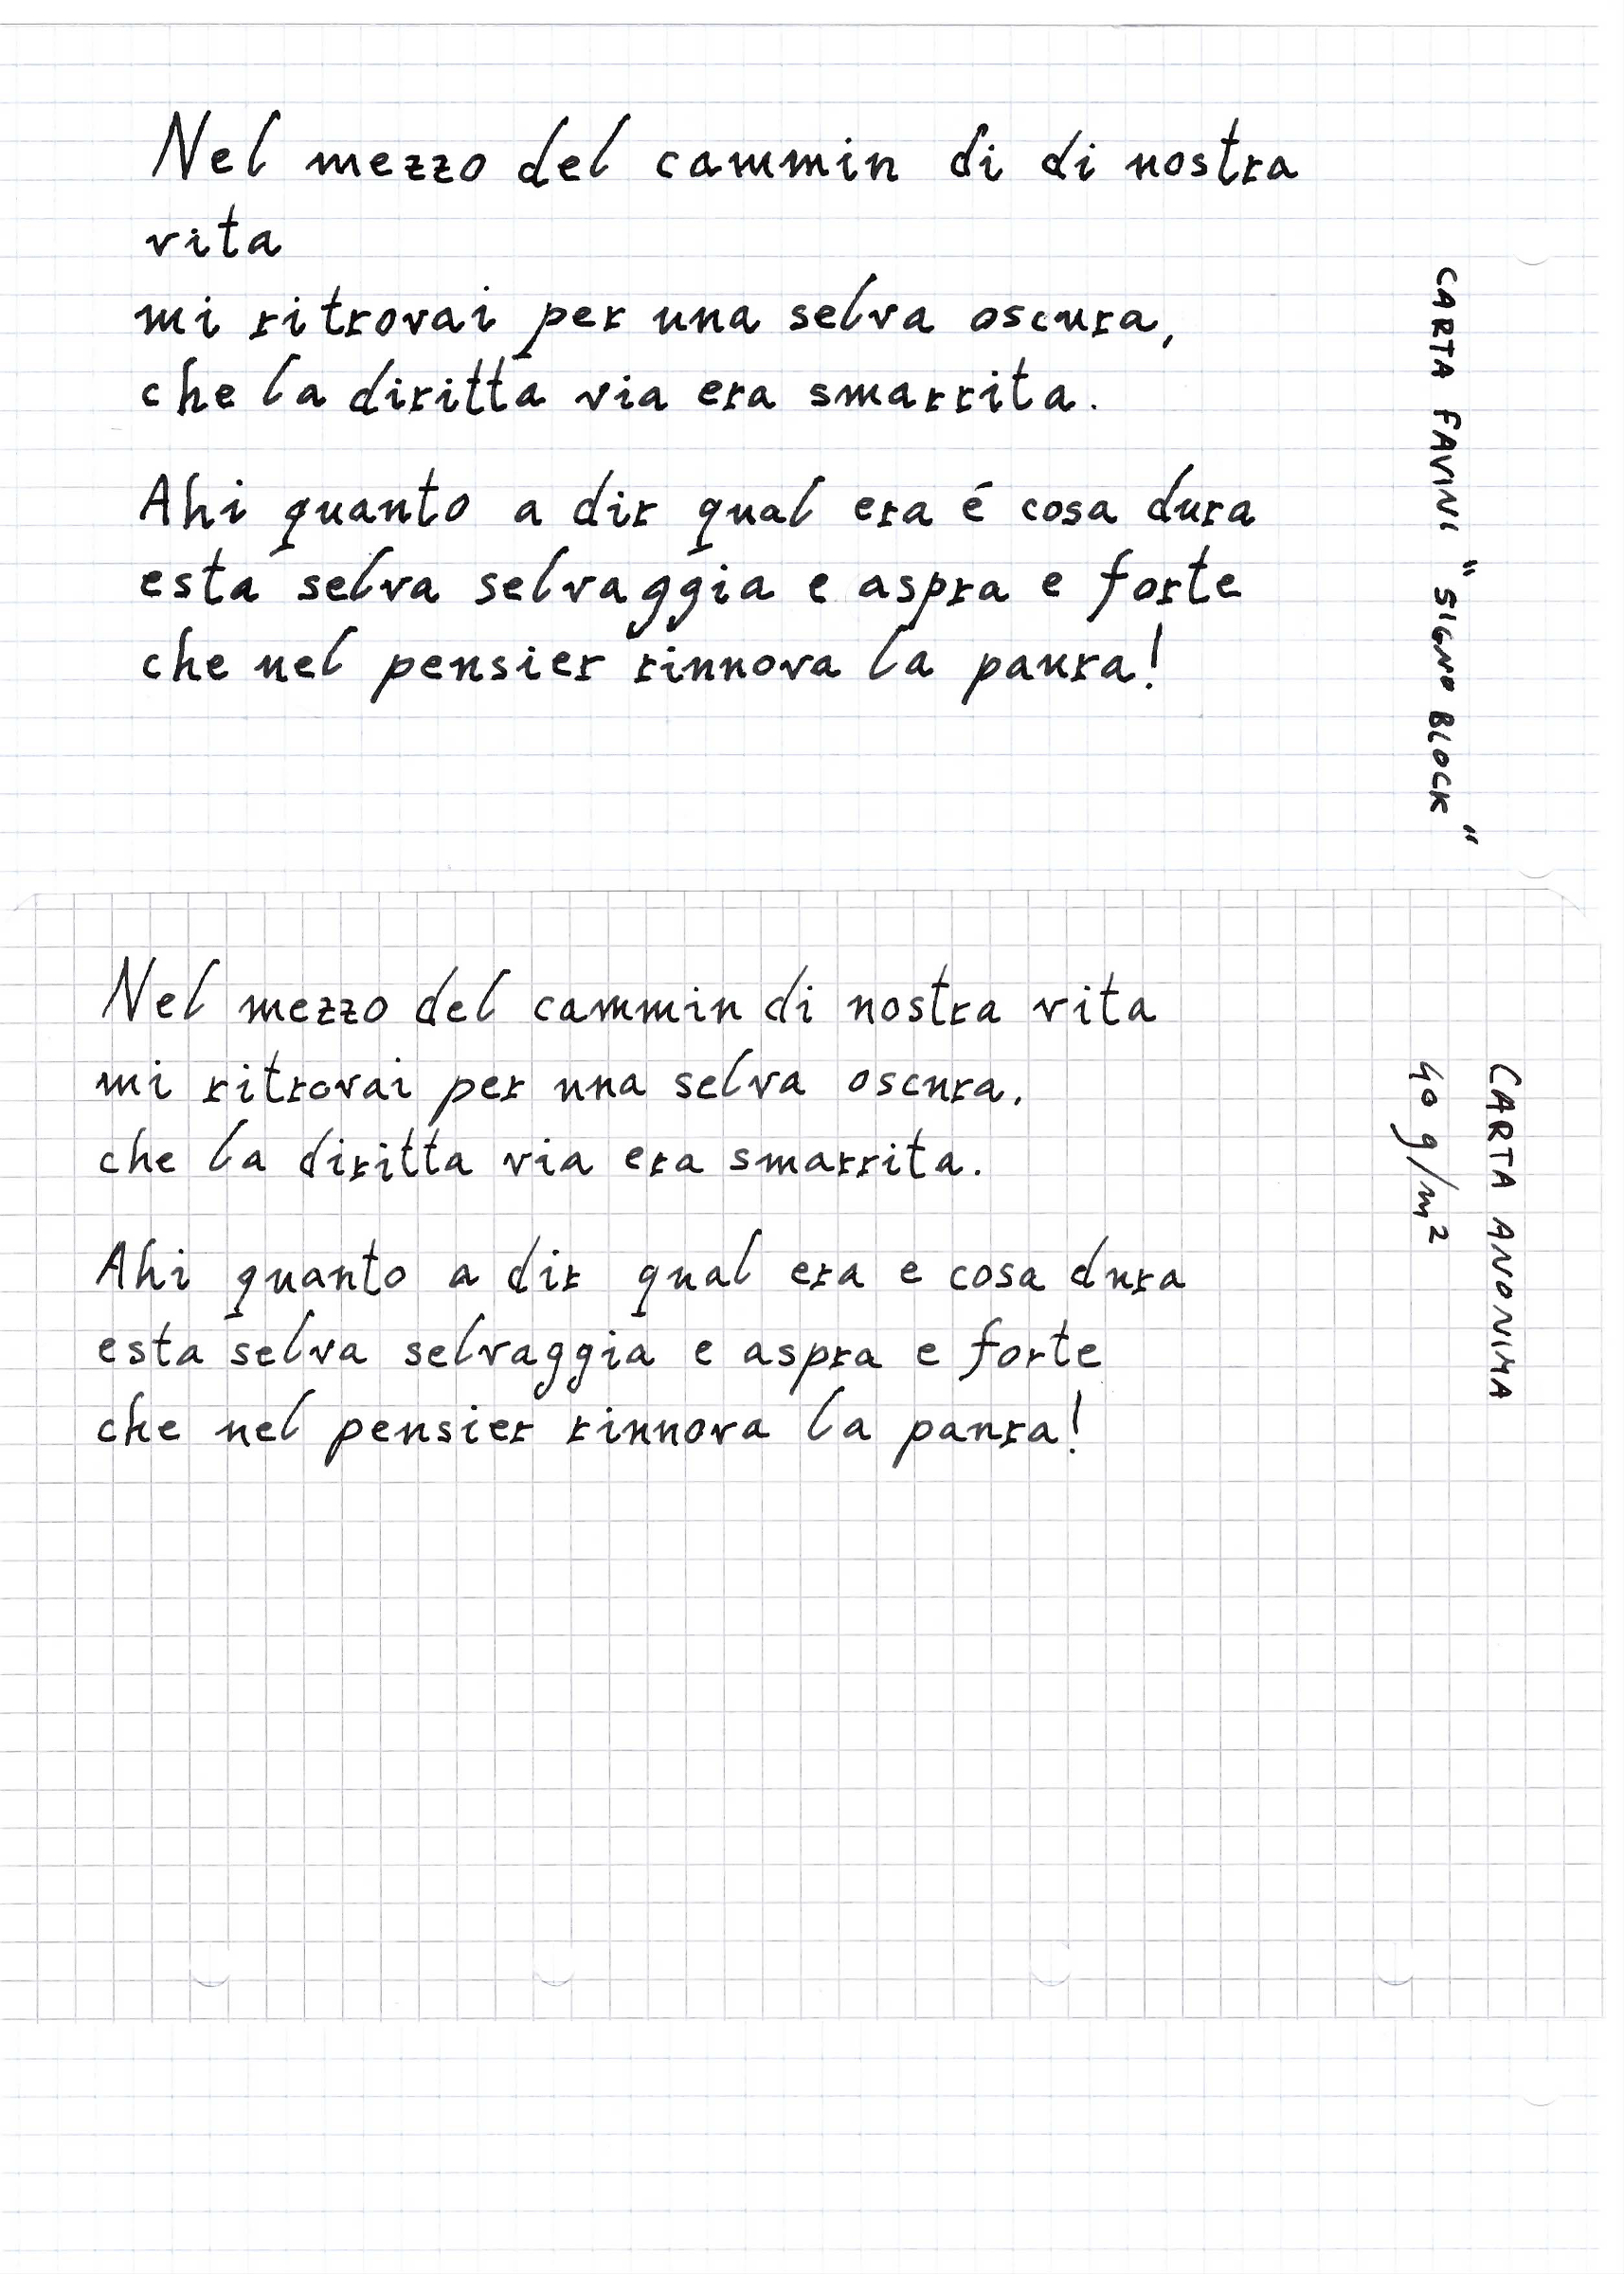 Nel mezzo del cammin di di nostra
vita
mi ritrovai per una selva oscura,
che la diritta via era smarrita.
Ahi quanto a dir qual era é cosa dura
esta selva selvaggia e aspra e forte
che nel pensier rinnova la paura!
CARTA FAVINI "SIGNO BLOCK"
Nel mezzo del cammin di nostra vita
mi ritrovai per una selva oscura,
che la diritta via era smarrita.
Ahi quanto a dir qual era e cosa dura
esta selva selvaggia e aspra e forte
che nel pensier rinnova la paura!
CARTA ANONIMA
40 g/m²